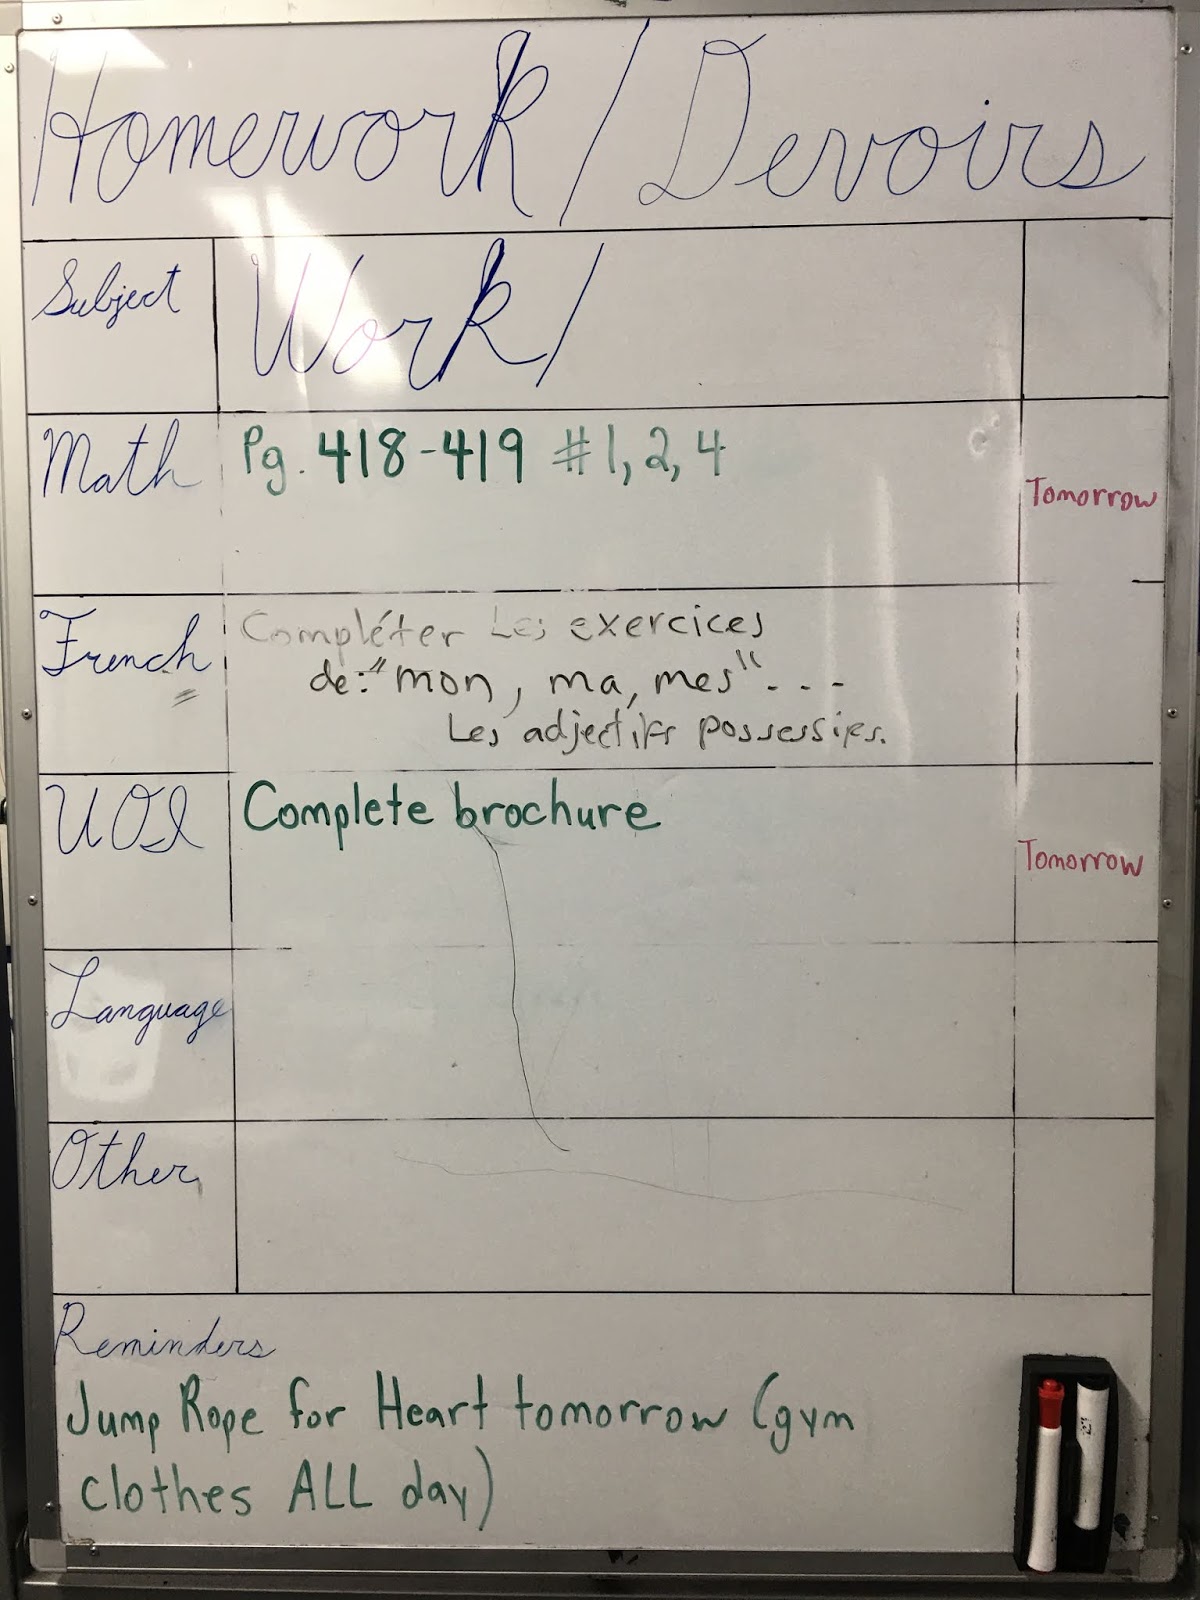 Homework / Devoirs
Subject Work/
Math Pg. 418-419 #1, 2, 4 Tomorrow
French Compléter Les exercices
de: "mon, ma, mes" ...
Les adjectifs possessifs.
UOI Complete brochure Tomorrow
Language
Other
Reminders
Jump Rope for Heart tomorrow (gym
clothes ALL day)